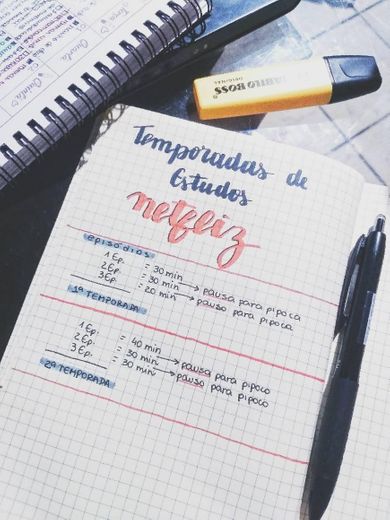 Quinta
STABILO BOSS
ORIGINAL
Temporadas de
Estudos
netfliz
episódios
1 Ep. = 30 min → pausa para pipoca
2 Ep. = 30 min → pausa para pipoca
3 Ep. = 20 min
1ª TEMPORADA
1 Ep. = 40 min → pausa para pipoca
2 Ep. = 30 min → pausa para pipoca
3 Ep. = 30 min
2ª TEMPORADA